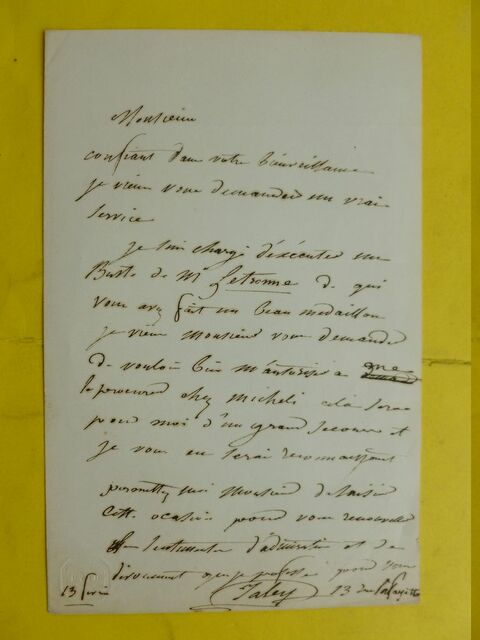 Monsieur
confiant dans votre bienveillance
je viens vous demander un vrai
service
je suis chargé d'exécuter un
Buste de Mr Letronne de qui
vous avez fait un beau medaillon
je viens Monsieur vous demander
de vouloir bien m'autoriser a me
le procurer chez Micheli cela sera
pour moi d'un grand secours et
je vous en serai reconnaissant
permettez moi Monsieur de saisir
cette ocasion pour vous renouveller
les sentiments d'admiration et de
dévouement que je professe pour vous
13 février
13 rue